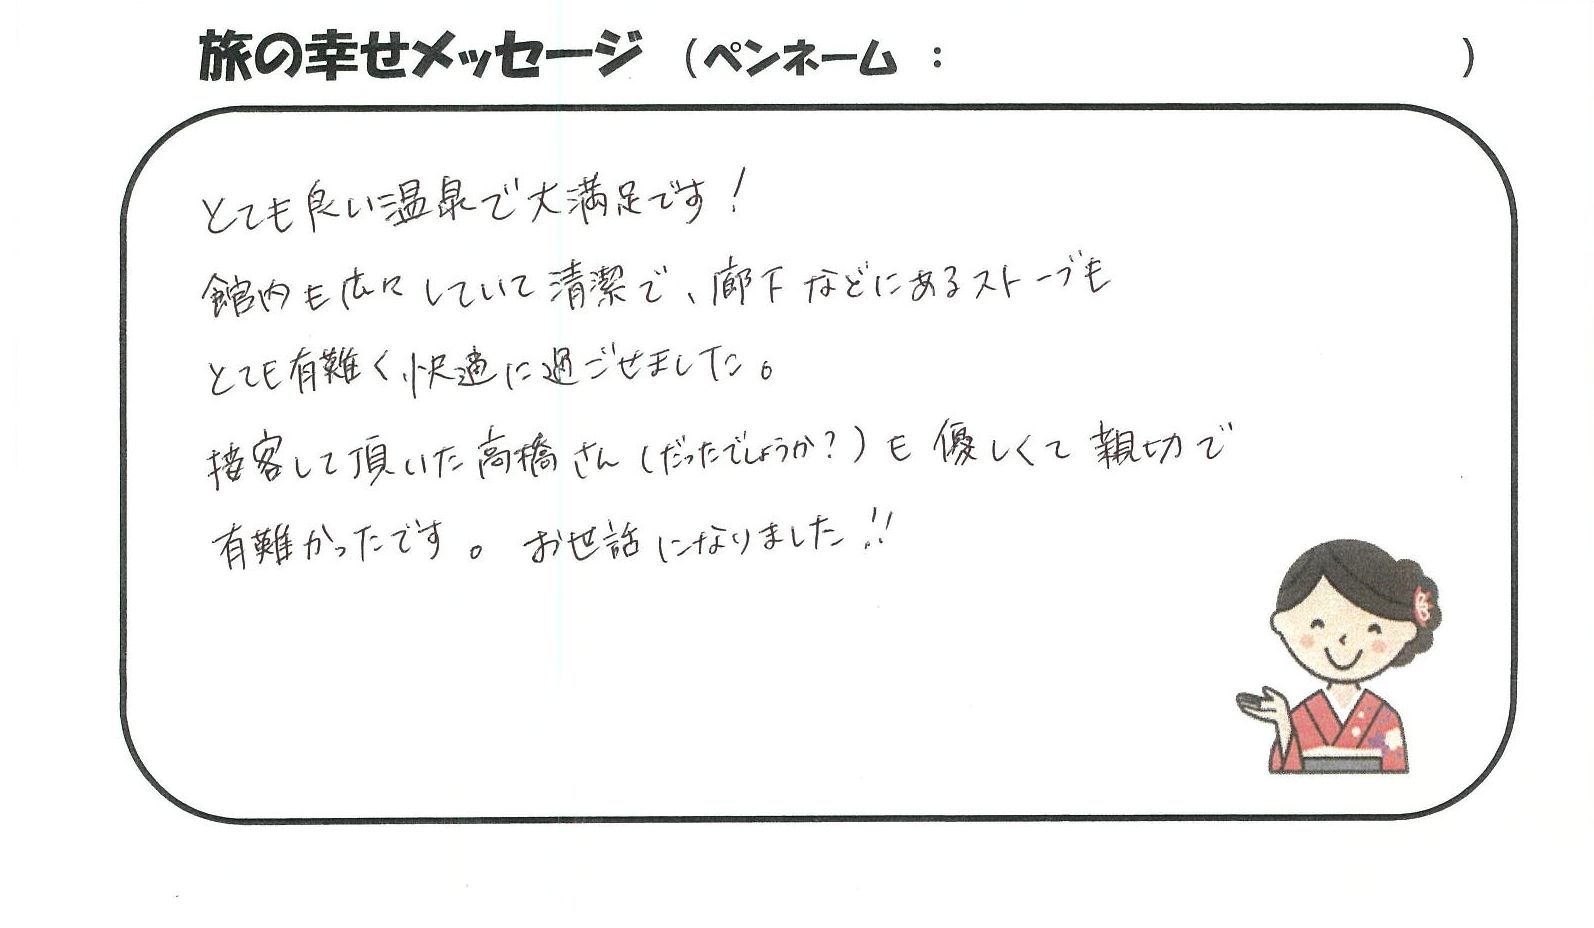 旅の幸せメッセージ （ペンネーム ： ）
とても良い温泉で大満足です！
館内も広々していて清潔で、廊下などにあるストーブも
とても有難く、快適に過ごせました。
接客して頂いた高橋さん（だったでしょうか？）も優しくて親切で
有難かったです。お世話になりました!!